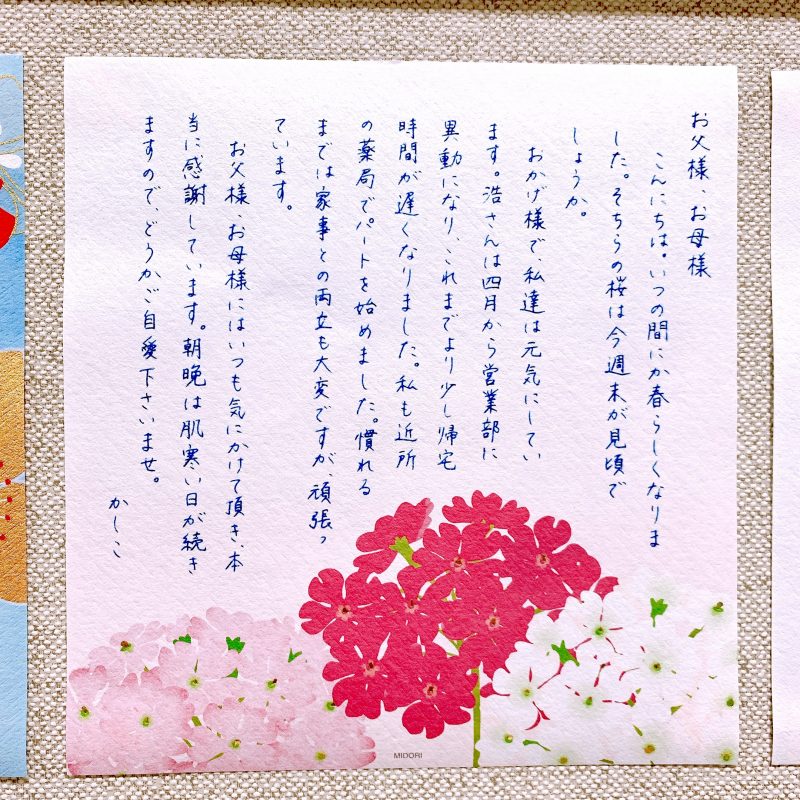 お父様、お母様
こんにちは。いつの間にか春らしくなりま
した。そちらの桜は今週末が見頃で
しょうか。
おかげ様で、私達は元気にしてい
ます。浩さんは四月から営業部に
異動になり、これまでより少し帰宅
時間が遅くなりました。私も近所
の薬局でパートを始めました。慣れる
までは家事との両立も大変ですが、頑張っ
ています。
お父様、お母様にはいつも気にかけて頂き、本
当に感謝しています。朝晩は肌寒い日が続き
ますので、どうかご自愛下さいませ。
かしこ
MIDORI